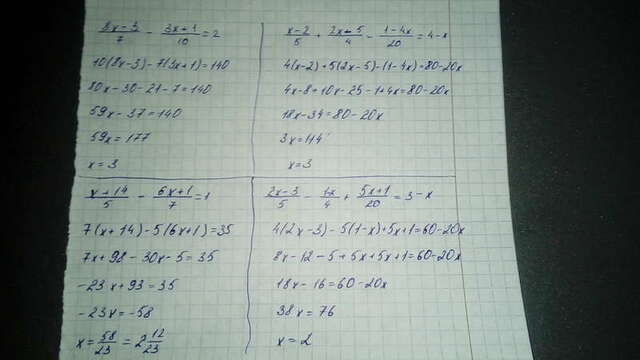 (8x-3)/7 - (3x+1)/10 = 2
10(8x-3)-7(3x+1)=140
80x-30-21-7=140
59x-37=140
59x=177
x=3
(x+14)/5 - (6x+1)/7 = 1
7(x+14)-5(6x+1)=35
7x+98-30x-5=35
-23x+93=35
-23x=-58
x=58/23=2 12/23
(x-2)/5 + (2x-5)/4 - (1-4x)/20 = 4-x
4(x-2)+5(2x-5)-(1-4x)=80-20x
4x-8+10x-25-1+4x=80-20x
18x-34=80-20x
3x=114
x=3
(2x-3)/5 - /4 + (5x+1)/20 = 3-x
4(2x-3)-5(1-x)+5x+1=60-20x
8x-12-5+5x+5x+1=60-20x
18x-16=60-20x
38x=76
x=2